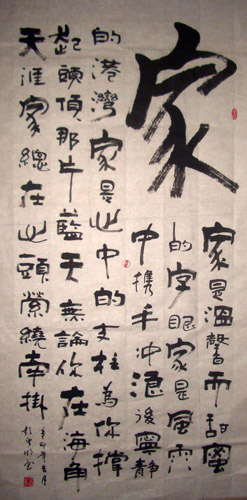 家
家是溫馨而甜蜜
的字眼家是風雨
中携手冲浪後寧靜
的港灣家是心中的支柱為你撐
起頭頂那片藍天無論你在海角
天涯家總在心頭縈繞牽掛
辛卯年